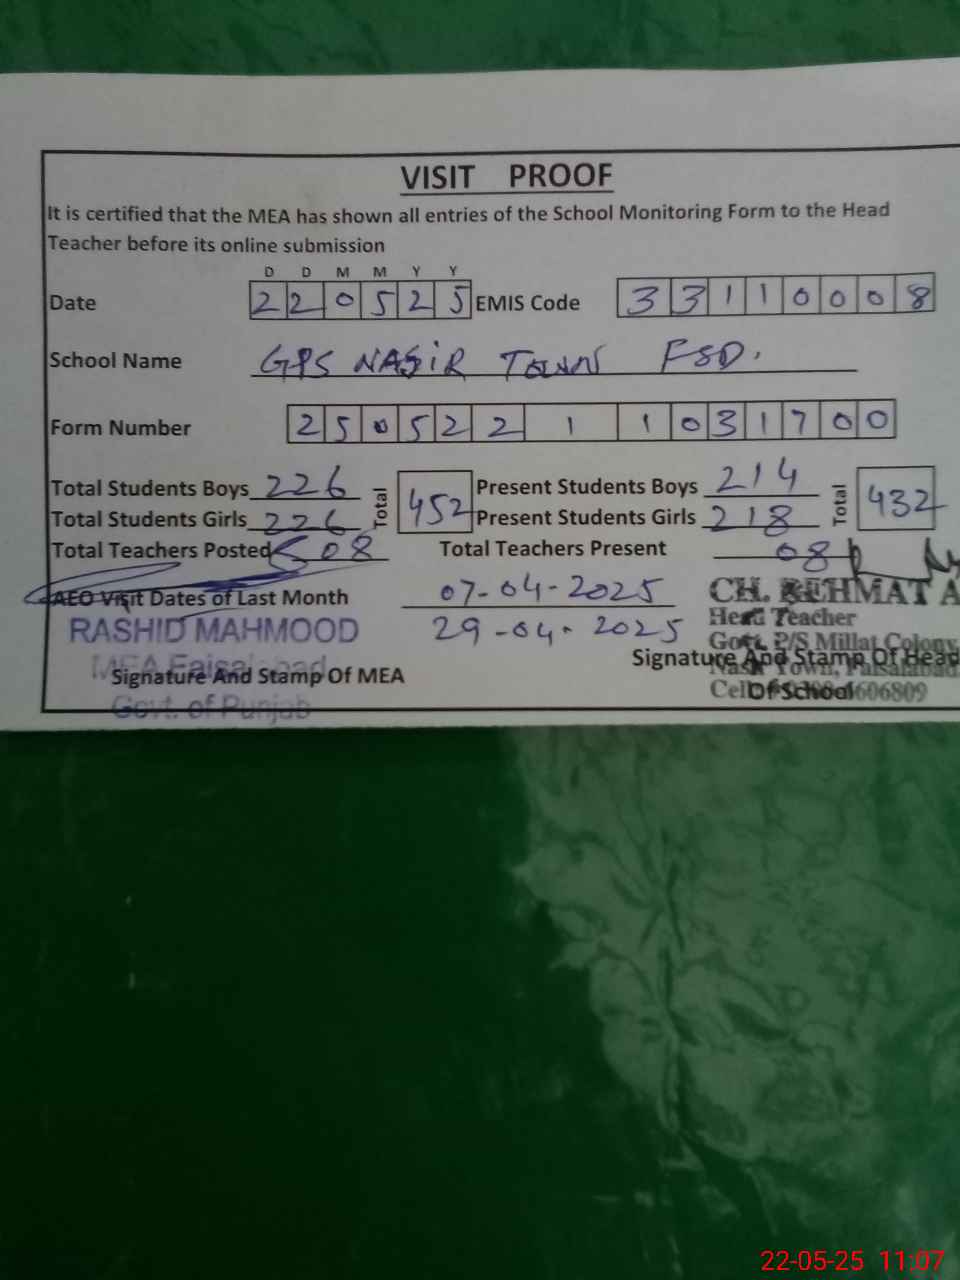 VISIT PROOF
It is certified that the MEA has shown all entries of the School Monitoring Form to the Head
Teacher before its online submission
D D M M Y Y
Date 2 2 0 5 2 5 EMIS Code 3 3 1 1 0 0 0 8
School Name GPS NASIR TOWN FSD.
Form Number 2 5 0 5 2 2 1 1 0 3 1 7 0 0
Total Students Boys 226 Total 452 Present Students Boys 214 Total 432
Total Students Girls 226 Present Students Girls 218
Total Teachers Posted 08 Total Teachers Present 08
AEO Visit Dates of Last Month 07-04-2025
29-04-2025
RASHID MAHMOOD
MEA Faisalabad
Govt. of Punjab
Signature And Stamp Of MEA
CH. REHMAT A
Head Teacher
Govt. P/S Millat Colony
Nasir Town, Faisalabad
Cell 606809
Signature And Stamp Of Head
Of School
22-05-25 11:07